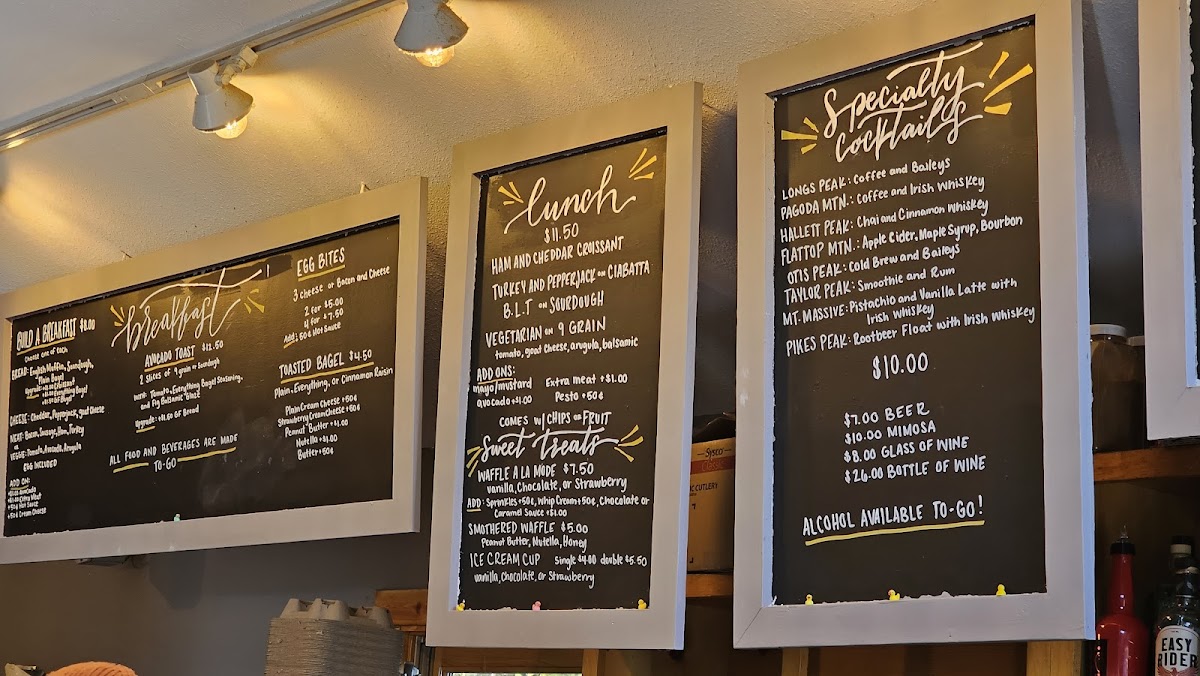 breakfast!
BUILD A BREAKFAST $8.00
Choose one of each
BREAD: English Muffin, Sourdough,
Plain Bagel
Upgrade: +$1.00 Croissant
+$1.00 Everything Bagel
CHEESE: Cheddar, Pepperjack, goat cheese
MEAT: Bacon, Sausage, Ham, Turkey
or
VEGGIE: Tomato, Avocado, Arugula
EGG INCLUDED
ADD ON:
+$1.00 Avocado
+$1.00 Extra Meat
+50¢ Hot Sauce
+50¢ Cream Cheese
AVOCADO TOAST $12.50
2 slices of 9 grain or Sourdough
WITH: Tomato, Everything Bagel Seasoning,
and Fig Balsamic Glaze
Upgrade: +$1.50 GF Bread
ALL FOOD AND BEVERAGES ARE MADE
TO-GO
EGG BITES
3 cheese or Bacon and Cheese
2 for $5.00
4 for $7.50
Add: 50¢ Hot Sauce
TOASTED BAGEL $4.50
Plain, Everything, or Cinnamon Raisin
Plain Cream Cheese +50¢
Strawberry Cream Cheese +50¢
Peanut Butter +$1.00
Nutella +$1.00
Butter +50¢
Lunch
$11.50
HAM AND CHEDDAR CROISSANT
TURKEY AND PEPPERJACK on CIABATTA
B.L.T on SOURDOUGH
VEGETARIAN on 9 GRAIN
tomato, goat Cheese, arugula, balsamic
ADD ONS:
mayo/mustard Extra meat +$1.00
avocado +$1.00 Pesto +50¢
COMES w/ CHIPS or FRUIT
Sweet treats
WAFFLE A LA MODE $7.50
vanilla, Chocolate, or Strawberry
ADD: Sprinkles +50¢, Whip Cream +50¢, Chocolate or
Caramel Sauce +$1.00
SMOTHERED WAFFLE $5.00
Peanut Butter, Nutella, Honey
ICE CREAM CUP Single $4.00 double $5.50
vanilla, chocolate, or Strawberry
Specialty
Cocktails
LONGS PEAK: Coffee and Baileys
PAGODA MTN.: Coffee and Irish Whiskey
HALLETT PEAK: Chai and Cinnamon Whiskey
FLATTOP MTN.: Apple Cider, Maple Syrup, Bourbon
OTIS PEAK: Cold Brew and Baileys
TAYLOR PEAK: Smoothie and Rum
MT. MASSIVE: Pistachio and Vanilla Latte with
Irish Whiskey
PIKES PEAK: Rootbeer Float with Irish Whiskey
$10.00
$7.00 BEER
$10.00 MIMOSA
$8.00 GLASS OF WINE
$26.00 BOTTLE OF WINE
ALCOHOL AVAILABLE TO-GO!
Sysco
CLASSIC
CUTLERY
EASY
RIDER